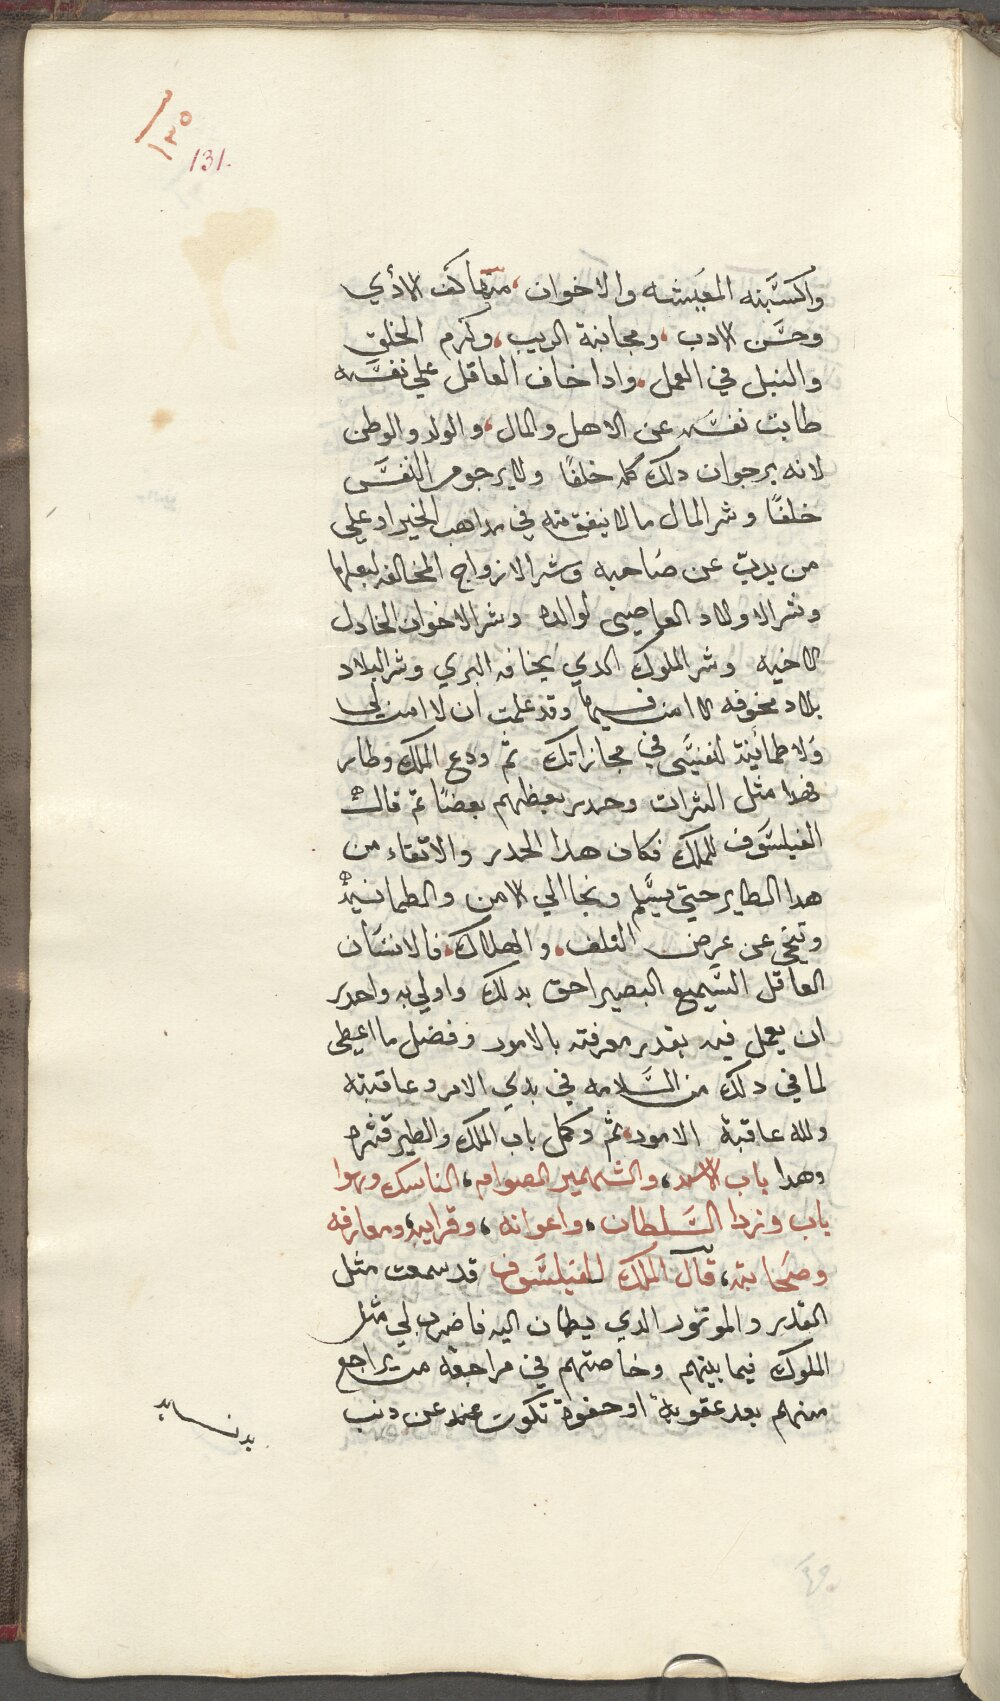 ١٣٥
131.
واكسَّبنه المعَيشه والاخوان، منها كف الاذي
وحسَّن الادب، ومجانبة الريب، وكرم الخلق
والنبل في العمل. واذا خاف العاقل علي نفسَّه
طابت نفسَّه عن الاهل والمال، والولد والوطن
لانه يرجوان دلك كله خلفًا ولا يرجو من النفسَّ
خلفًا وشر المال مالا ينفق منه في مداهب الخير او علي
من يدبّ عن صَاحبه وشر الازواج المخالفه لبعلها
وشر الاولاد العاصي لوالده وشر الاخوان الخادل
لاخيه وشر الملوك الدي يخافه البري وشر البلاد
بلاد مخوفه لا امن فيها وقد علمت ان لا امن لي
وَلا طمانينة لنفسَّي في مجازاتك ثم ودع الملك وطار
فهدا مثل الترات وحدر بعظهم بعضًا ثم قال
الفيلسَّوف للملك فكان هدا الحدر والاتقاء من
هدا الطاير حتي سَّلم ونجا الي الامن والطمانينة
وتنحي عن عرض التلف. والهلاك. فالانسَّان
العاقل السَّميع البصير احق بدلك واولي به واجدر
ان يعمل فيه بقدر معرفته بالامور وفضل ما اعطي
لما في دلك من السَّلامه في بدي الامر وعاقبته
ولله عاقبة الامور. ثم وكمل باب الملك والطير قنبره
وهدا باب الاسد، والشهمير الصوام، الناسك وهوا
باب وزرا السَّلطان، واعوانه، وقرايبه ومعارفه
وصَحابته، قال الملك للفيلسَّوف قد سمعت مثل
القدر والموتور الدي يطمان اليه فاضرب لي مثل
الملوك فيما بينهم وخاصتهم في مراجعة من يراجع
منهم بعد عقوبة او جفوة تكون عنه عن دنب